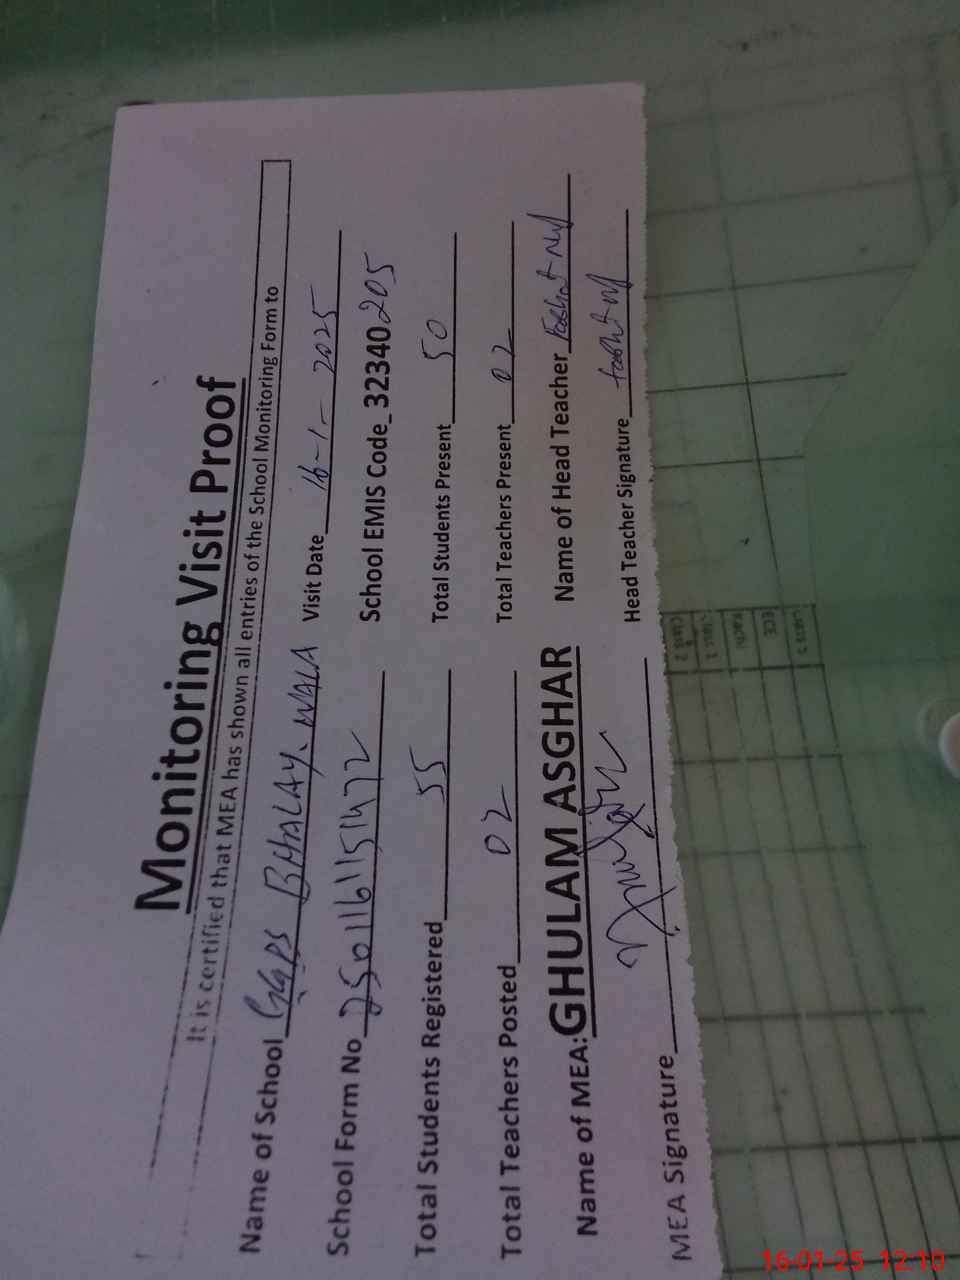 Monitoring Visit Proof
It is certified that MEA has shown all entries of the School Monitoring Form to
Name of School GGPS BHALAY WALA Visit Date 16-1-2025
School Form No 25011611511472 School EMIS Code 32340205
Total Students Registered 55 Total Students Present 50
Total Teachers Posted 02 Total Teachers Present 02
Name of MEA: GHULAM ASGHAR Name of Head Teacher
MEA Signature Head Teacher Signature
Class 2
Class 1
Kachi
ECE
16-01-25 12:10